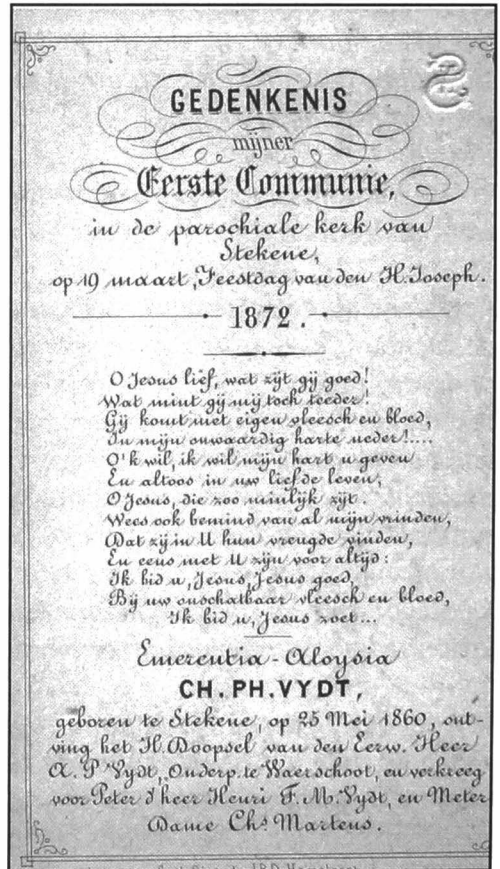 GEDENKENIS
mijner
Eerste Communie,
in de parochiale kerk van
Stekene,
op 19 maart, Feestdag van den H. Joseph.
1872.
O Jesus lief, wat zijt gij goed!
Wat mint gij mij toch teeder!
Gij komt met eigen vleesch en bloed,
In mijn onwaardig harte neder!....
O 'k wil, ik wil mijn hart u geven
En altoos in uw liefde leven,
O Jesus, die zoo minlijk zijt.
Wees ook bemind van al mijn vrinden,
Dat zij in U hun vreugde vinden,
En eens met U zijn voor altijd:
Ik bid u, Jesus, Jesus goed,
Bij uw onschatbaar vleesch en bloed,
Ik bid u, Jesus zoet...
Emerentia-Aloysia
CH. PH. VYDT,
geboren te Stekene, op 25 Mei 1860, ont-
ving het H. Doopsel van den Eerw. Heer
A. P. Vydt, Onderp. te Waerschoot, en verkreeg
voor Peter d'heer Henri F. M. Vydt, en Meter
Dame Chs Martens.